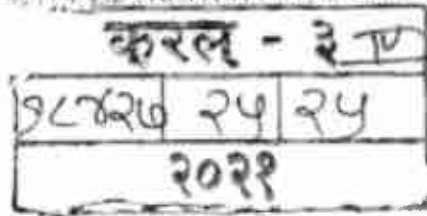 करल - ३
१८४२७ २५ २५
२०२१